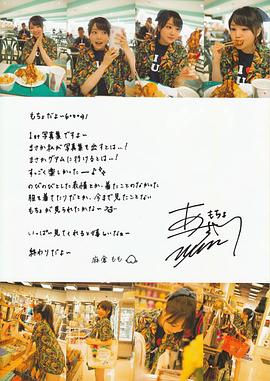 もちょだよー(o・ω・o)
1st写真集ですよー
まさか私が写真集を出すとは…!
まさかグアムに行けるとは…!
すっごく楽しかったー♪
のびのびとした表情とか、着たことのなかった
服を着てたりだとか、今まで見たことない
もちょが見られたかなー
いっぱい見てくれると嬉しいなぁー
終わりだよー
麻倉もも
もちょ